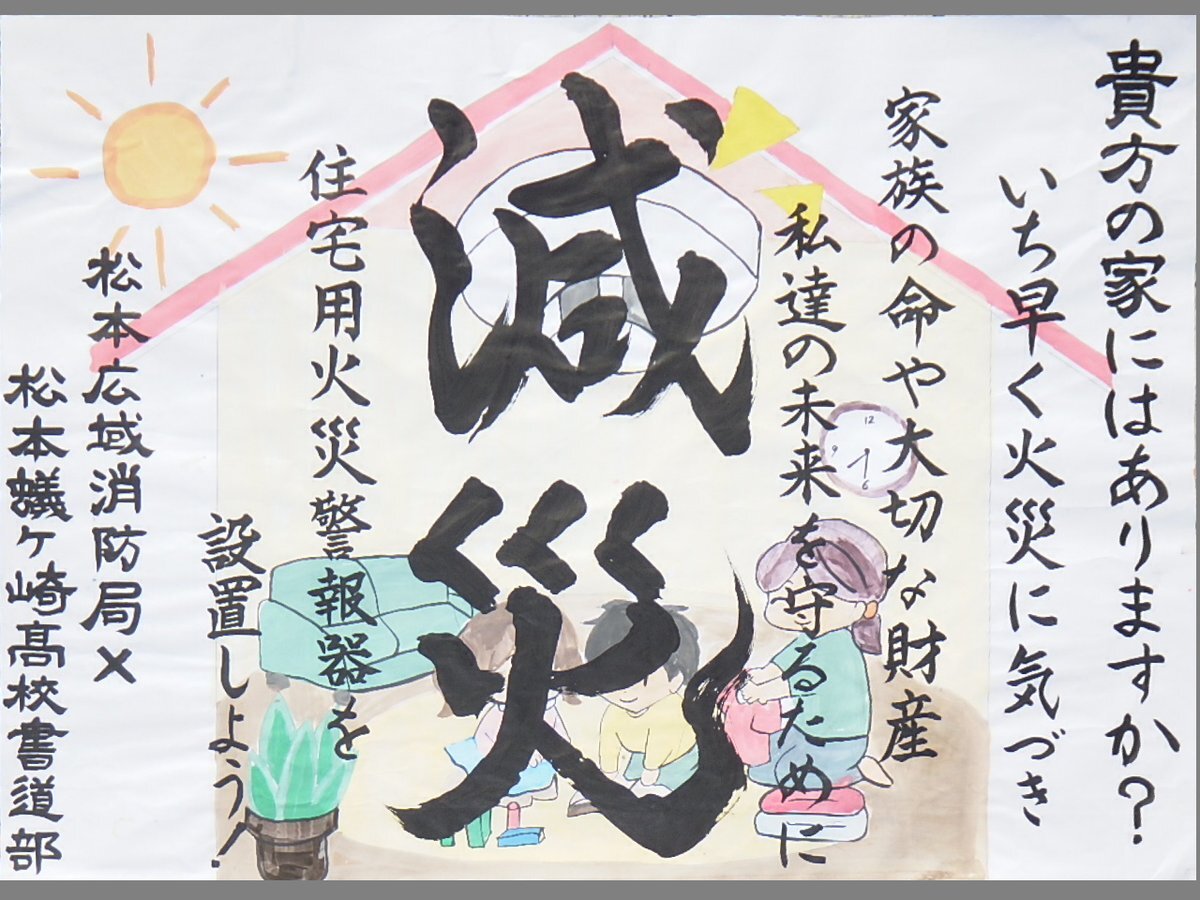 貴方の家にはありますか?
いち早く火災に気づき
家族の命や大切な財産
私達の未来を守るために
減災
住宅用火災警報器を
設置しよう!
松本広域消防局×
松本蟻ヶ崎高校書道部
12
9
6